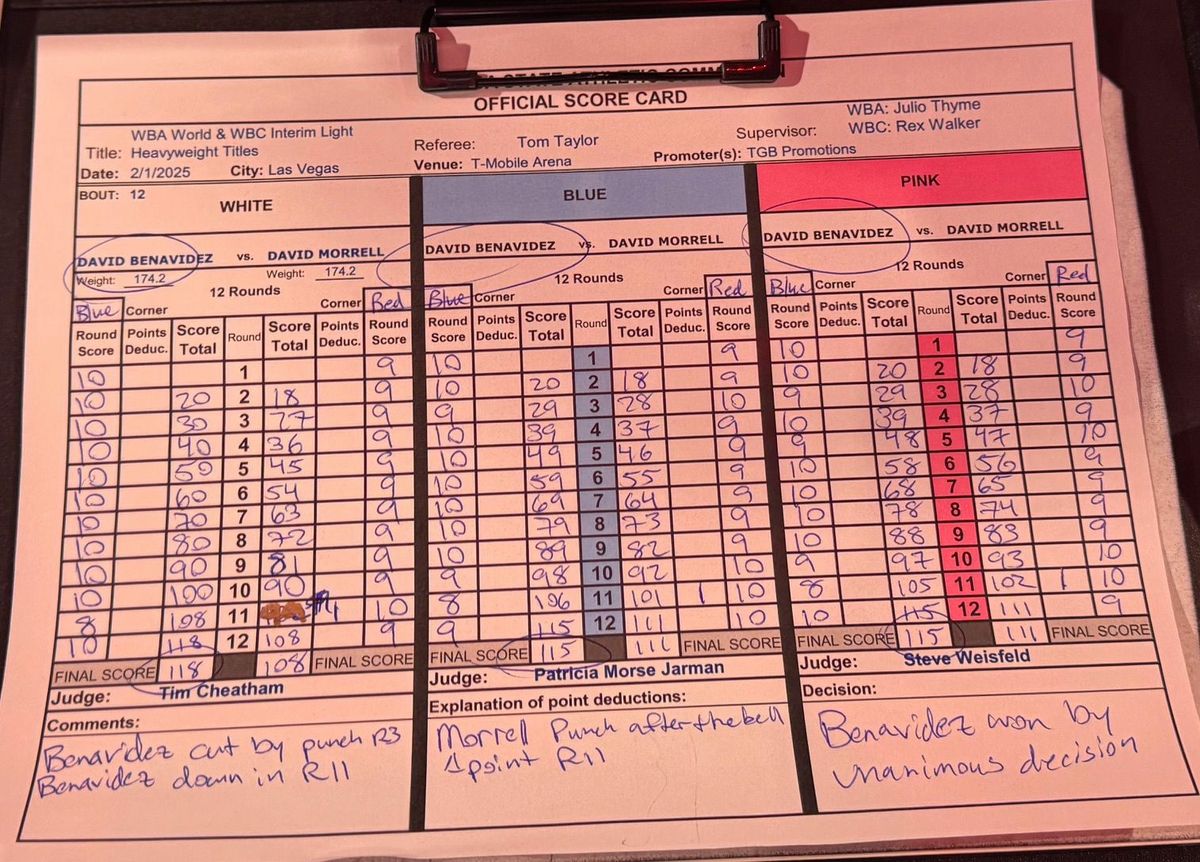 STATE ATHLETIC COMM
OFFICIAL SCORE CARD
Title: WBA World & WBC Interim Light
Heavyweight Titles
Referee: Tom Taylor
Supervisor: WBA: Julio Thyme
WBC: Rex Walker
Date: 2/1/2025 City: Las Vegas
Venue: T-Mobile Arena
Promoter(s): TGB Promotions
BOUT: 12
WHITE
DAVID BENAVIDEZ vs. DAVID MORRELL
Weight: 174.2 Weight: 174.2
12 Rounds
Blue Corner Corner Red
Round Score Points Deduc. Score Total Round Score Total Points Deduc. Round Score
10 1 9
10 20 2 18 9
10 30 3 27 9
10 40 4 36 9
10 50 5 45 9
10 60 6 54 9
10 70 7 63 9
10 80 8 72 9
10 90 9 81 9
10 100 10 90 9
8 108 11 1 10
10 118 12 108 9
FINAL SCORE 118 108 FINAL SCORE
Judge: Tim Cheatham
Comments:
Benavidez cut by punch R3
Benavidez down in R11
BLUE
DAVID BENAVIDEZ vs. DAVID MORRELL
12 Rounds
Blue Corner Corner Red
Round Score Points Deduc. Score Total Round Score Total Points Deduc. Round Score
10 1 9
10 20 2 18 9
9 29 3 28 10
10 39 4 37 9
10 49 5 46 9
10 59 6 55 9
10 69 7 64 9
10 79 8 73 9
10 89 9 82 9
9 98 10 92 10
8 106 11 101 1 10
9 115 12 111 10
FINAL SCORE 115 111 FINAL SCORE
Judge: Patricia Morse Jarman
Explanation of point deductions:
Morrell Punch after the bell
1 point R11
PINK
DAVID BENAVIDEZ vs. DAVID MORRELL
12 Rounds
Blue Corner Corner Red
Round Score Points Deduc. Score Total Round Score Total Points Deduc. Round Score
10 1 9
10 20 2 18 9
9 29 3 28 10
10 39 4 37 9
9 48 5 47 10
10 58 6 56 9
10 68 7 65 9
10 78 8 74 9
10 88 9 83 9
9 97 10 93 10
8 105 11 102 1 10
10 115 12 111 9
FINAL SCORE 115 111 FINAL SCORE
Judge: Steve Weisfeld
Decision:
Benavidez won by
unanimous decision